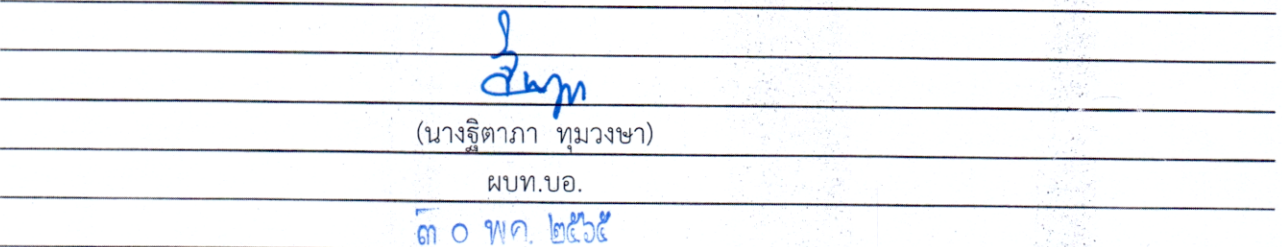 (นางฐิตาภา ทุมวงษา)
ผบท.บอ.
๓ ๐ พค. ๒๕๖๕